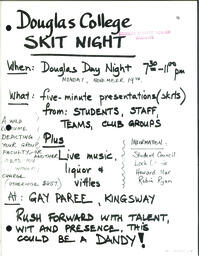 Douglas College
SKIT NIGHT
When: Douglas Day Night 7:30-11:00 pm
MONDAY, NOVEMBER 19TH.
What: five-minute presentations (skits)
from: STUDENTS, STAFF,
TEAMS, CLUB GROUPS
Plus
Live music,
liquor &
vittles
A WILD
COSTUME
DEPICTING
YOUR GROUP,
FACULTY, OR
ANOTHER
CHARGE
(OTHERWISE, 50¢)
INFORMATION:
Student Council
Robin Ryan
At: GAY PAREE, KINGSWAY
RUSH FORWARD WITH TALENT,
WIT AND PRESENCE. THIS
COULD BE A DANDY!